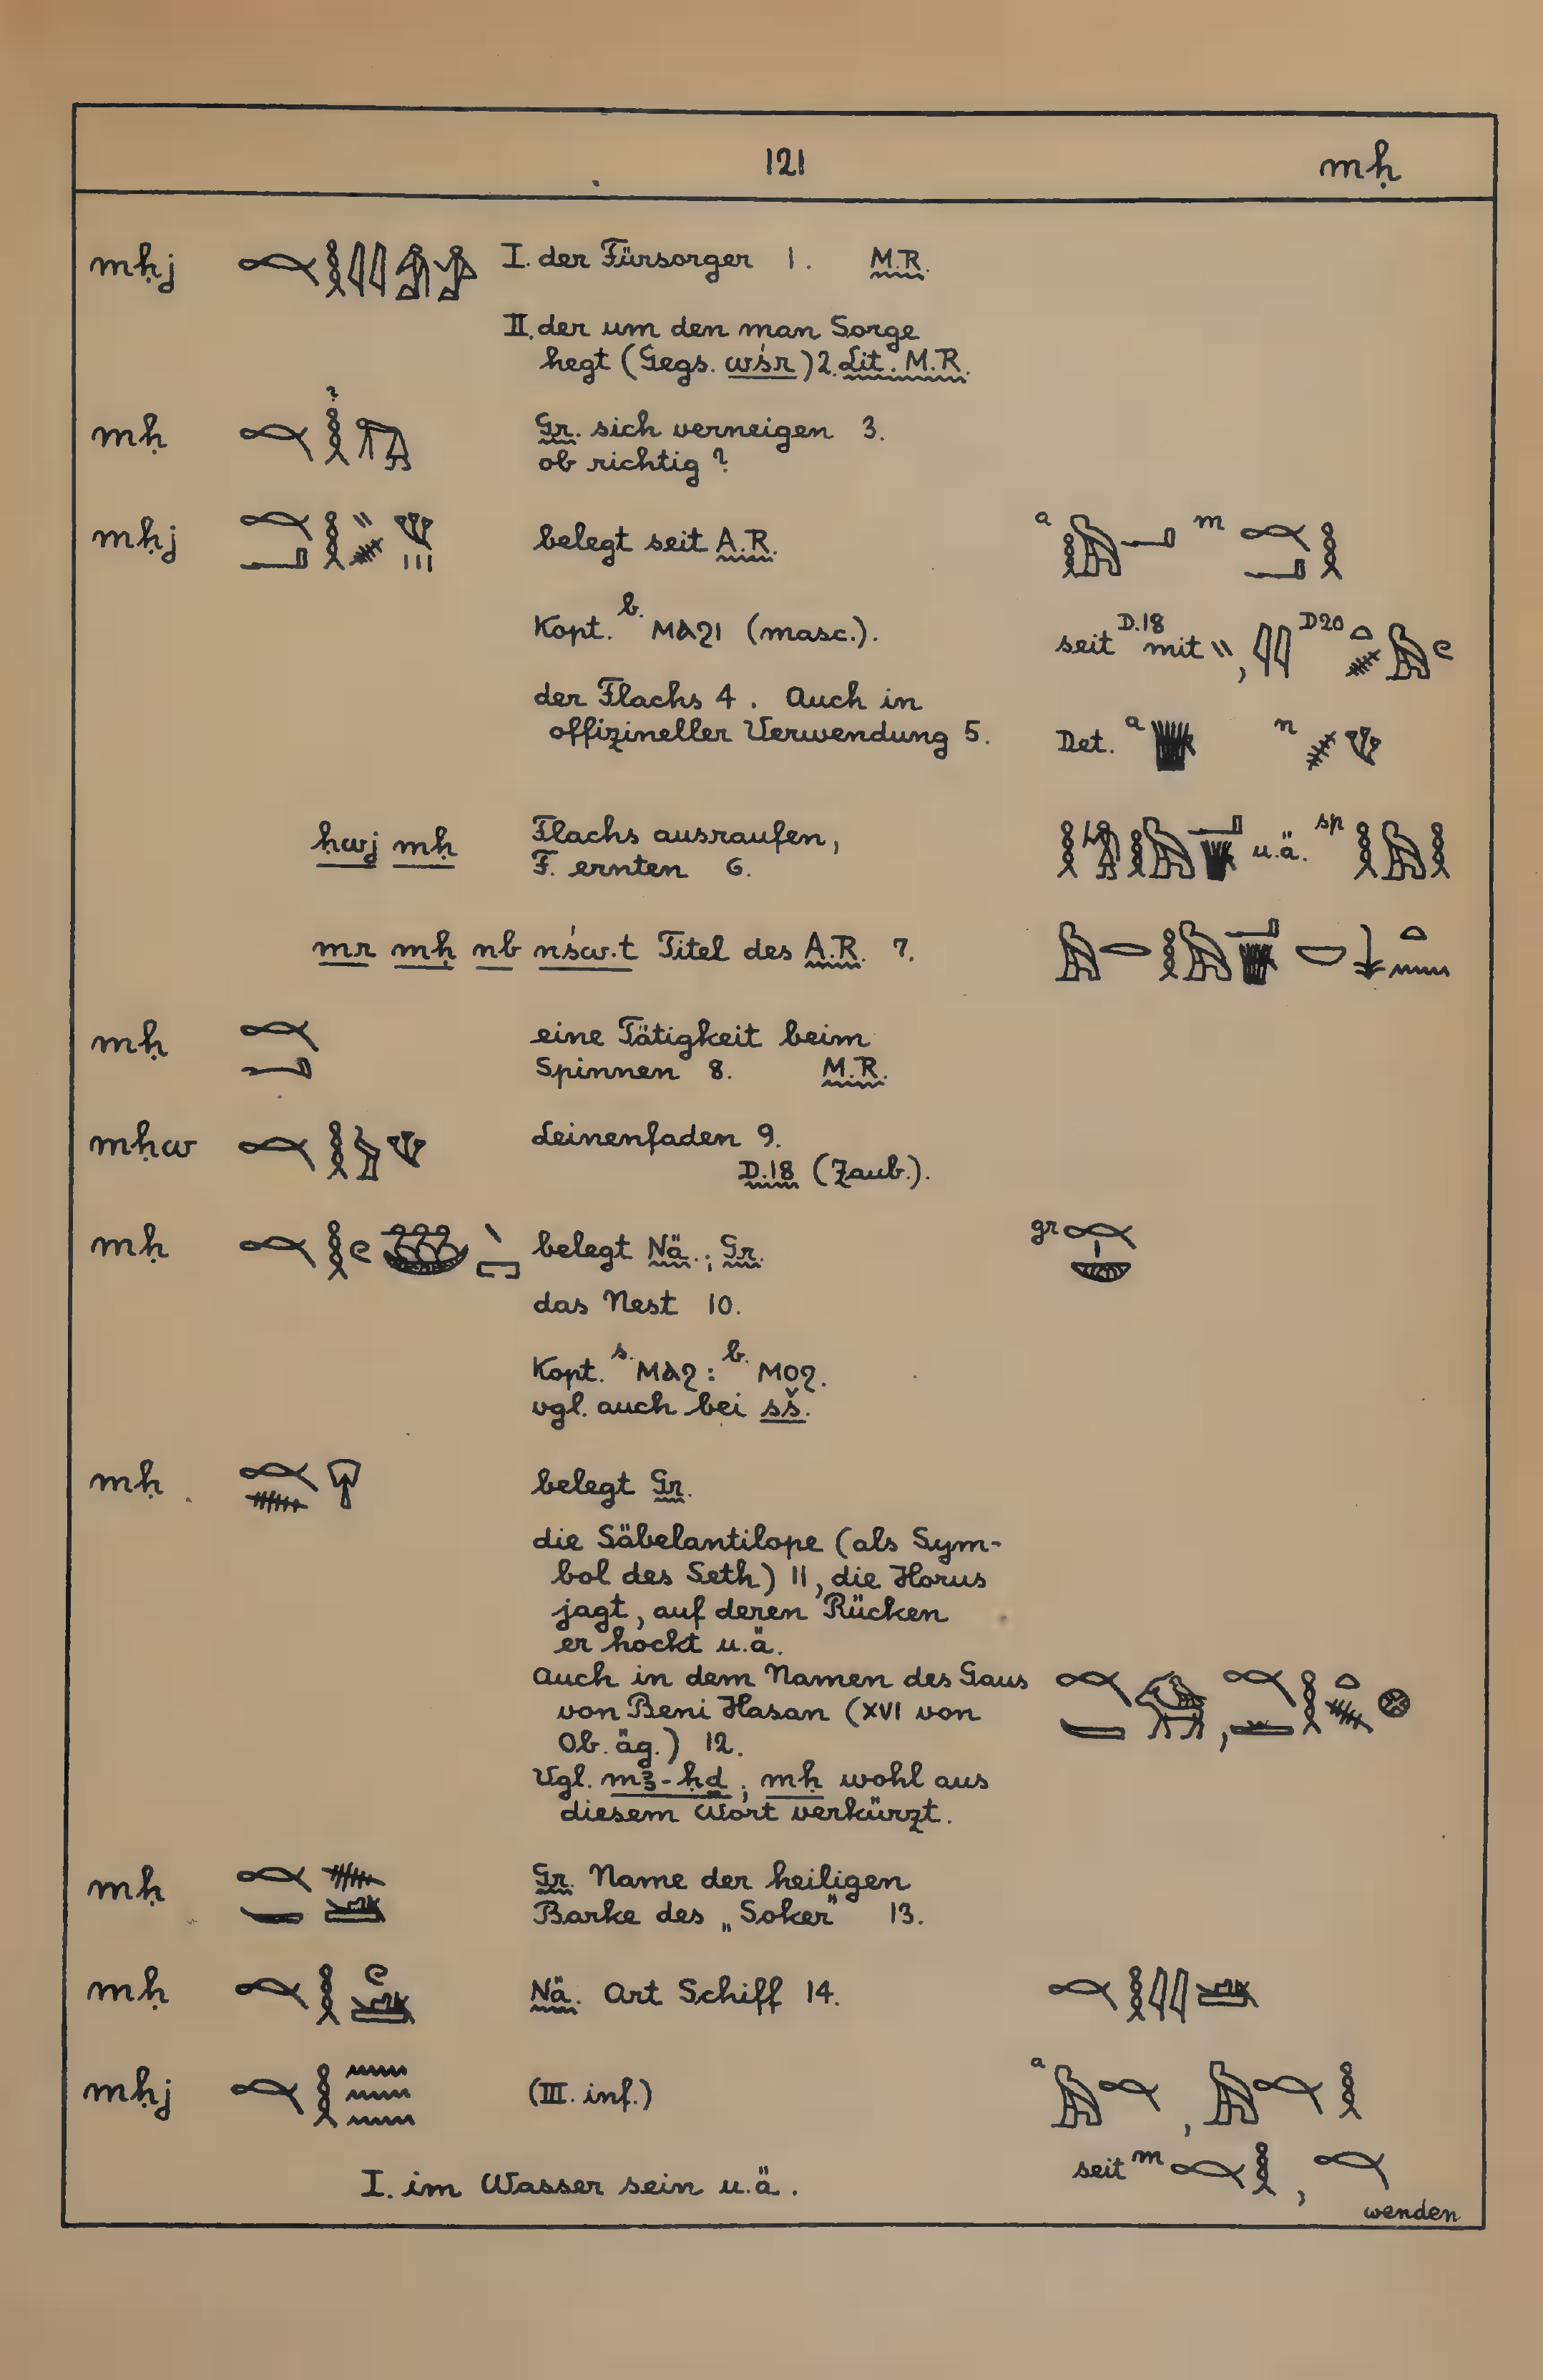 121 mḥ
mḥj I. der Fürsorger 1. M.R.
II. der um den man Sorge
hegt (Gegs. wśr) 2. Lit. M.R.
?
mḥ Gr. sich verneigen 3.
ob richtig?
mḥj belegt seit A.R. a m
Kopt. b. ⲙⲁϩⲓ (masc.). seit D.18 mit \\, 𓇋𓇋 D20
der Flachs 4. Auch in
offizineller Verwendung 5. Det. a n
ḥwj mḥ Flachs ausraufen, u.ä. sp
F. ernten 6.
mr mḥ nb nśw.t Titel des A.R. 7.
mḥ eine Tätigkeit beim
Spinnen 8. M.R.
mḥw Leinenfaden 9.
D.18 (Zaub.).
mḥ belegt Nä.; Gr. gr
das Nest 10.
Kopt. s. ⲙⲁϩ : b. ⲙⲟϩ.
vgl. auch bei sš.
mḥ belegt Gr.
die Säbelantilope (als Sym-
bol des Seth) 11, die Horus
jagt, auf deren Rücken
er hockt u.ä.
Auch in dem Namen des Gaus
von Beni Hasan (XVI von
Ob. äg.) 12.
Vgl. mꜣ-ḥḏ; mḥ wohl aus
diesem Wort verkürzt.
mḥ Gr. Name der heiligen
Barke des „Soker" 13.
mḥ Nä. Art Schiff 14.
mḥj (III. inf.) a
I. im Wasser sein u.ä. seit m
wenden